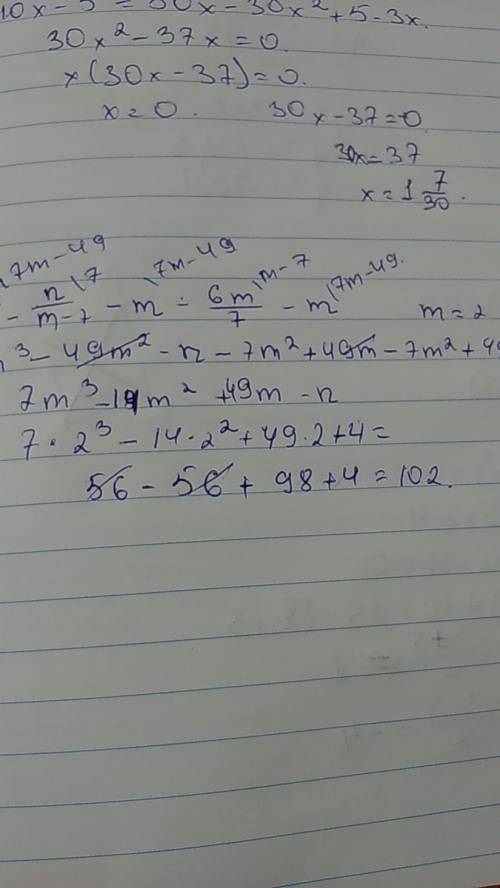 10x - 5 = 30x - 30x² + 5 - 3x.
30x² - 37x = 0.
x(30x - 37) = 0.
x = 0. 30x - 37 = 0
30x = 37
x = 1 7/30.
\7m - 49 \7 \7m - 49 \m - 7 \7m - 49.
- n/(m - 7) - m = 6m/7 - m m = 2
³ - 49m² - n - 7m² + 49m - 7m² + 49
7m³ - 14m² + 49m - n
7 · 2³ - 14 · 2² + 49 · 2 + 4 =
56 - 56 + 98 + 4 = 102.